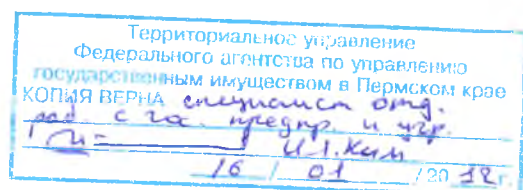 Территориальное управление
Федерального агентства по управлению
государственным имуществом в Пермском крае
КОПИЯ ВЕРНА специалист отд.
раб. с гос. предпр. и учр.
И.Л. Ким
16 / 01 / 2012 г.